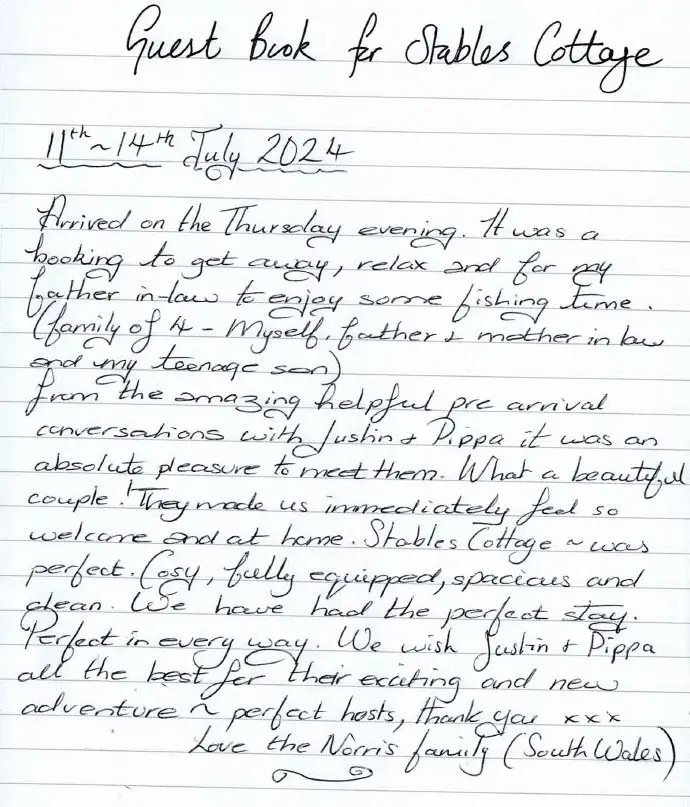 Guest Book for Stables Cottage
11th ~ 14th July 2024
Arrived on the Thursday evening. It was a
booking to get away, relax and for my
father in-law to enjoy some fishing time.
(family of 4 - Myself, father + mother in law
and my teenage son)
from the amazing helpful pre arrival
conversations with Justin + Pippa it was an
absolute pleasure to meet them. What a beautiful
couple! They made us immediately feel so
welcome and at home. Stables Cottage ~ was
perfect. Cosy, fully equipped, spacious and
clean. We have had the perfect stay.
Perfect in every way. We wish Justin + Pippa
all the best for their exciting and new
adventure ~ perfect hosts, thank you xxx
Love the Norris family (South Wales)